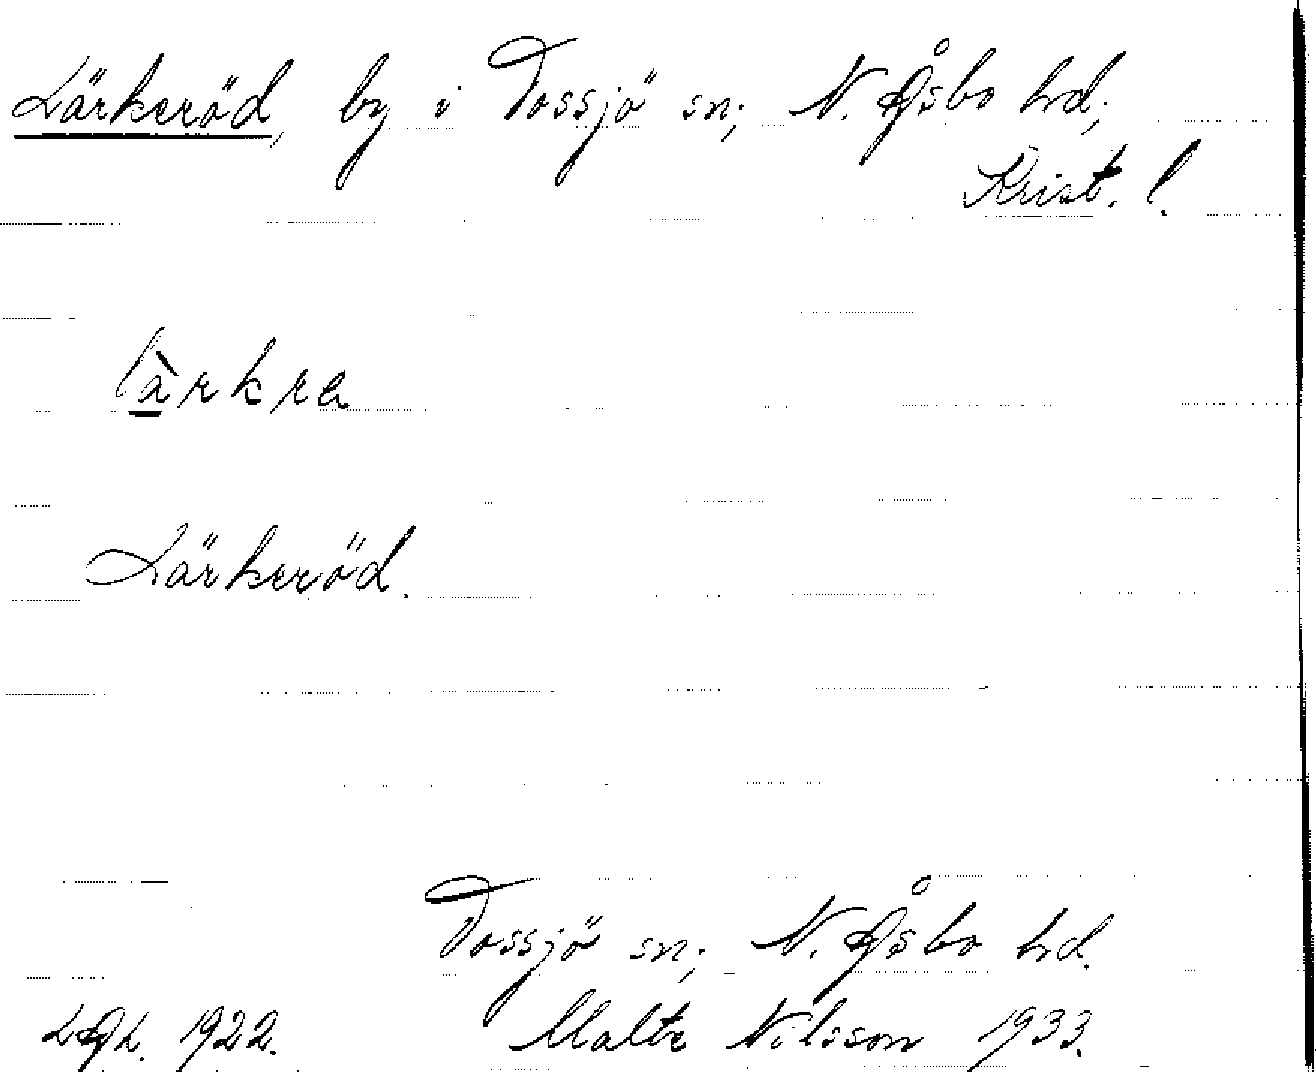 Lärkeröd, by i Tossjö sn; N. Åsbo hd;
Krist. l.
làrkra
Lärkeröd.
Tossjö sn; N. Åsbo hd.
LAL. 1922. Malte Nilsson 1933.